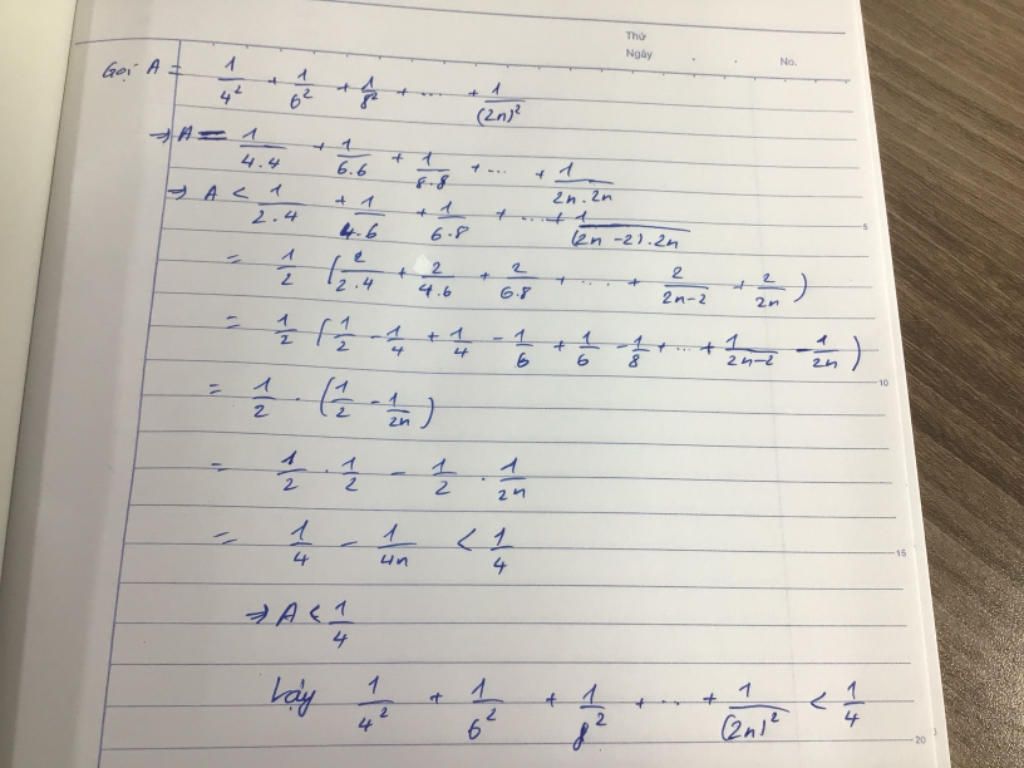 Thứ
Ngày . . No.
Gọi A = 1/4² + 1/6² + 1/8² + .... + 1/(2n)²
⇒ A = 1/4.4 + 1/6.6 + 1/8.8 + ... + 1/2n.2n
⇒ A < 1/2.4 + 1/4.6 + 1/6.8 + ... + 1/(2n-2).2n
= 1/2 (2/2.4 + 2/4.6 + 2/6.8 + .... + 2/2n-2 + 2/2n)
= 1/2 (1/2 - 1/4 + 1/4 - 1/6 + 1/6 - 1/8 + ... + 1/2n-2 - 1/2n)
= 1/2 . (1/2 - 1/2n)
= 1/2 . 1/2 - 1/2 . 1/2n
= 1/4 - 1/4n < 1/4
⇒ A < 1/4
Vậy 1/4² + 1/6² + 1/8² + ... + 1/(2n)² < 1/4
5
10
15
20